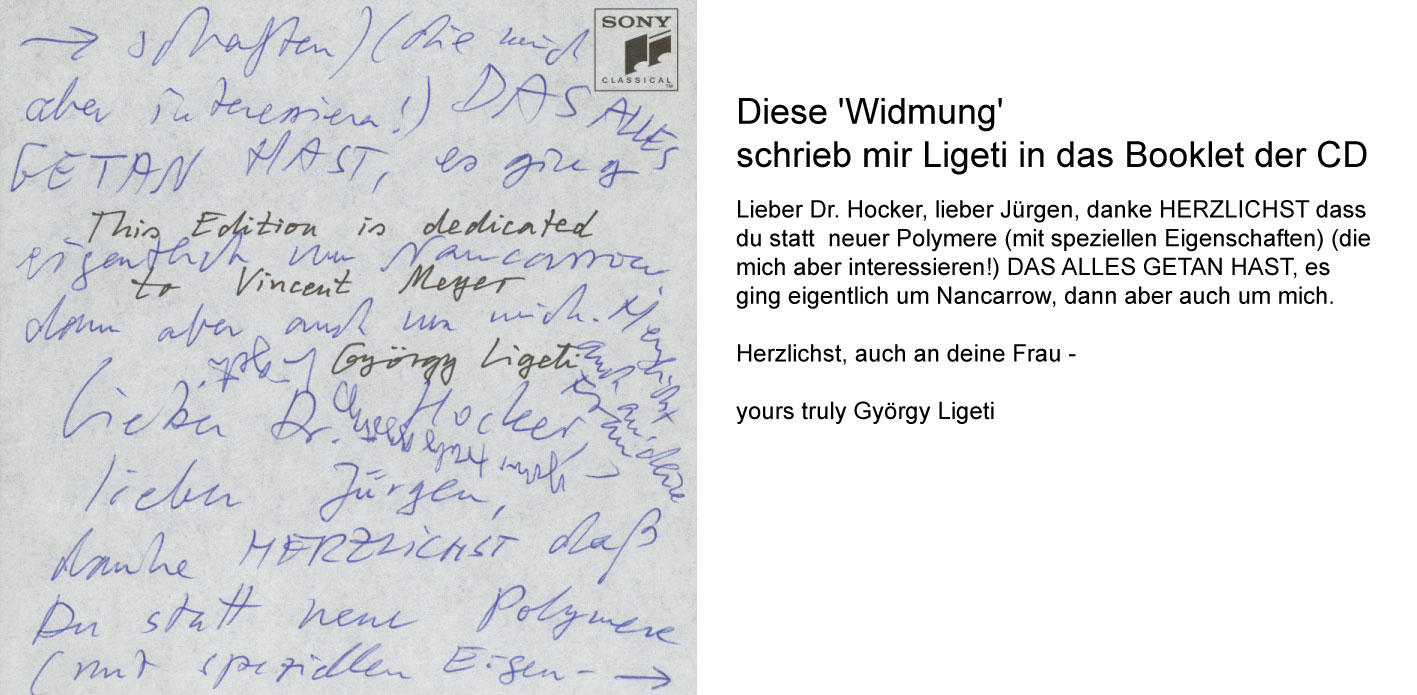 → schaften) (die mich
SONY
CLASSICAL™
aber interessieren!) DAS ALLES
GETAN HAST, es ging
This Edition is dedicated
eigentlich um Nancarrow,
to Vincent Meyer
dann aber auch um mich. Herzlichst
auch an deine
György Ligeti
Lieber Dr. Hocker,
lieber Jürgen,
danke HERZLICHST daß
Du statt neue Polymere
(mit speziellen Eigen- →
Diese 'Widmung'
schrieb mir Ligeti in das Booklet der CD
Lieber Dr. Hocker, lieber Jürgen, danke HERZLICHST dass
du statt  neuer Polymere (mit speziellen Eigenschaften) (die
mich aber interessieren!) DAS ALLES GETAN HAST, es
ging eigentlich um Nancarrow, dann aber auch um mich.
Herzlichst, auch an deine Frau -
yours truly György Ligeti